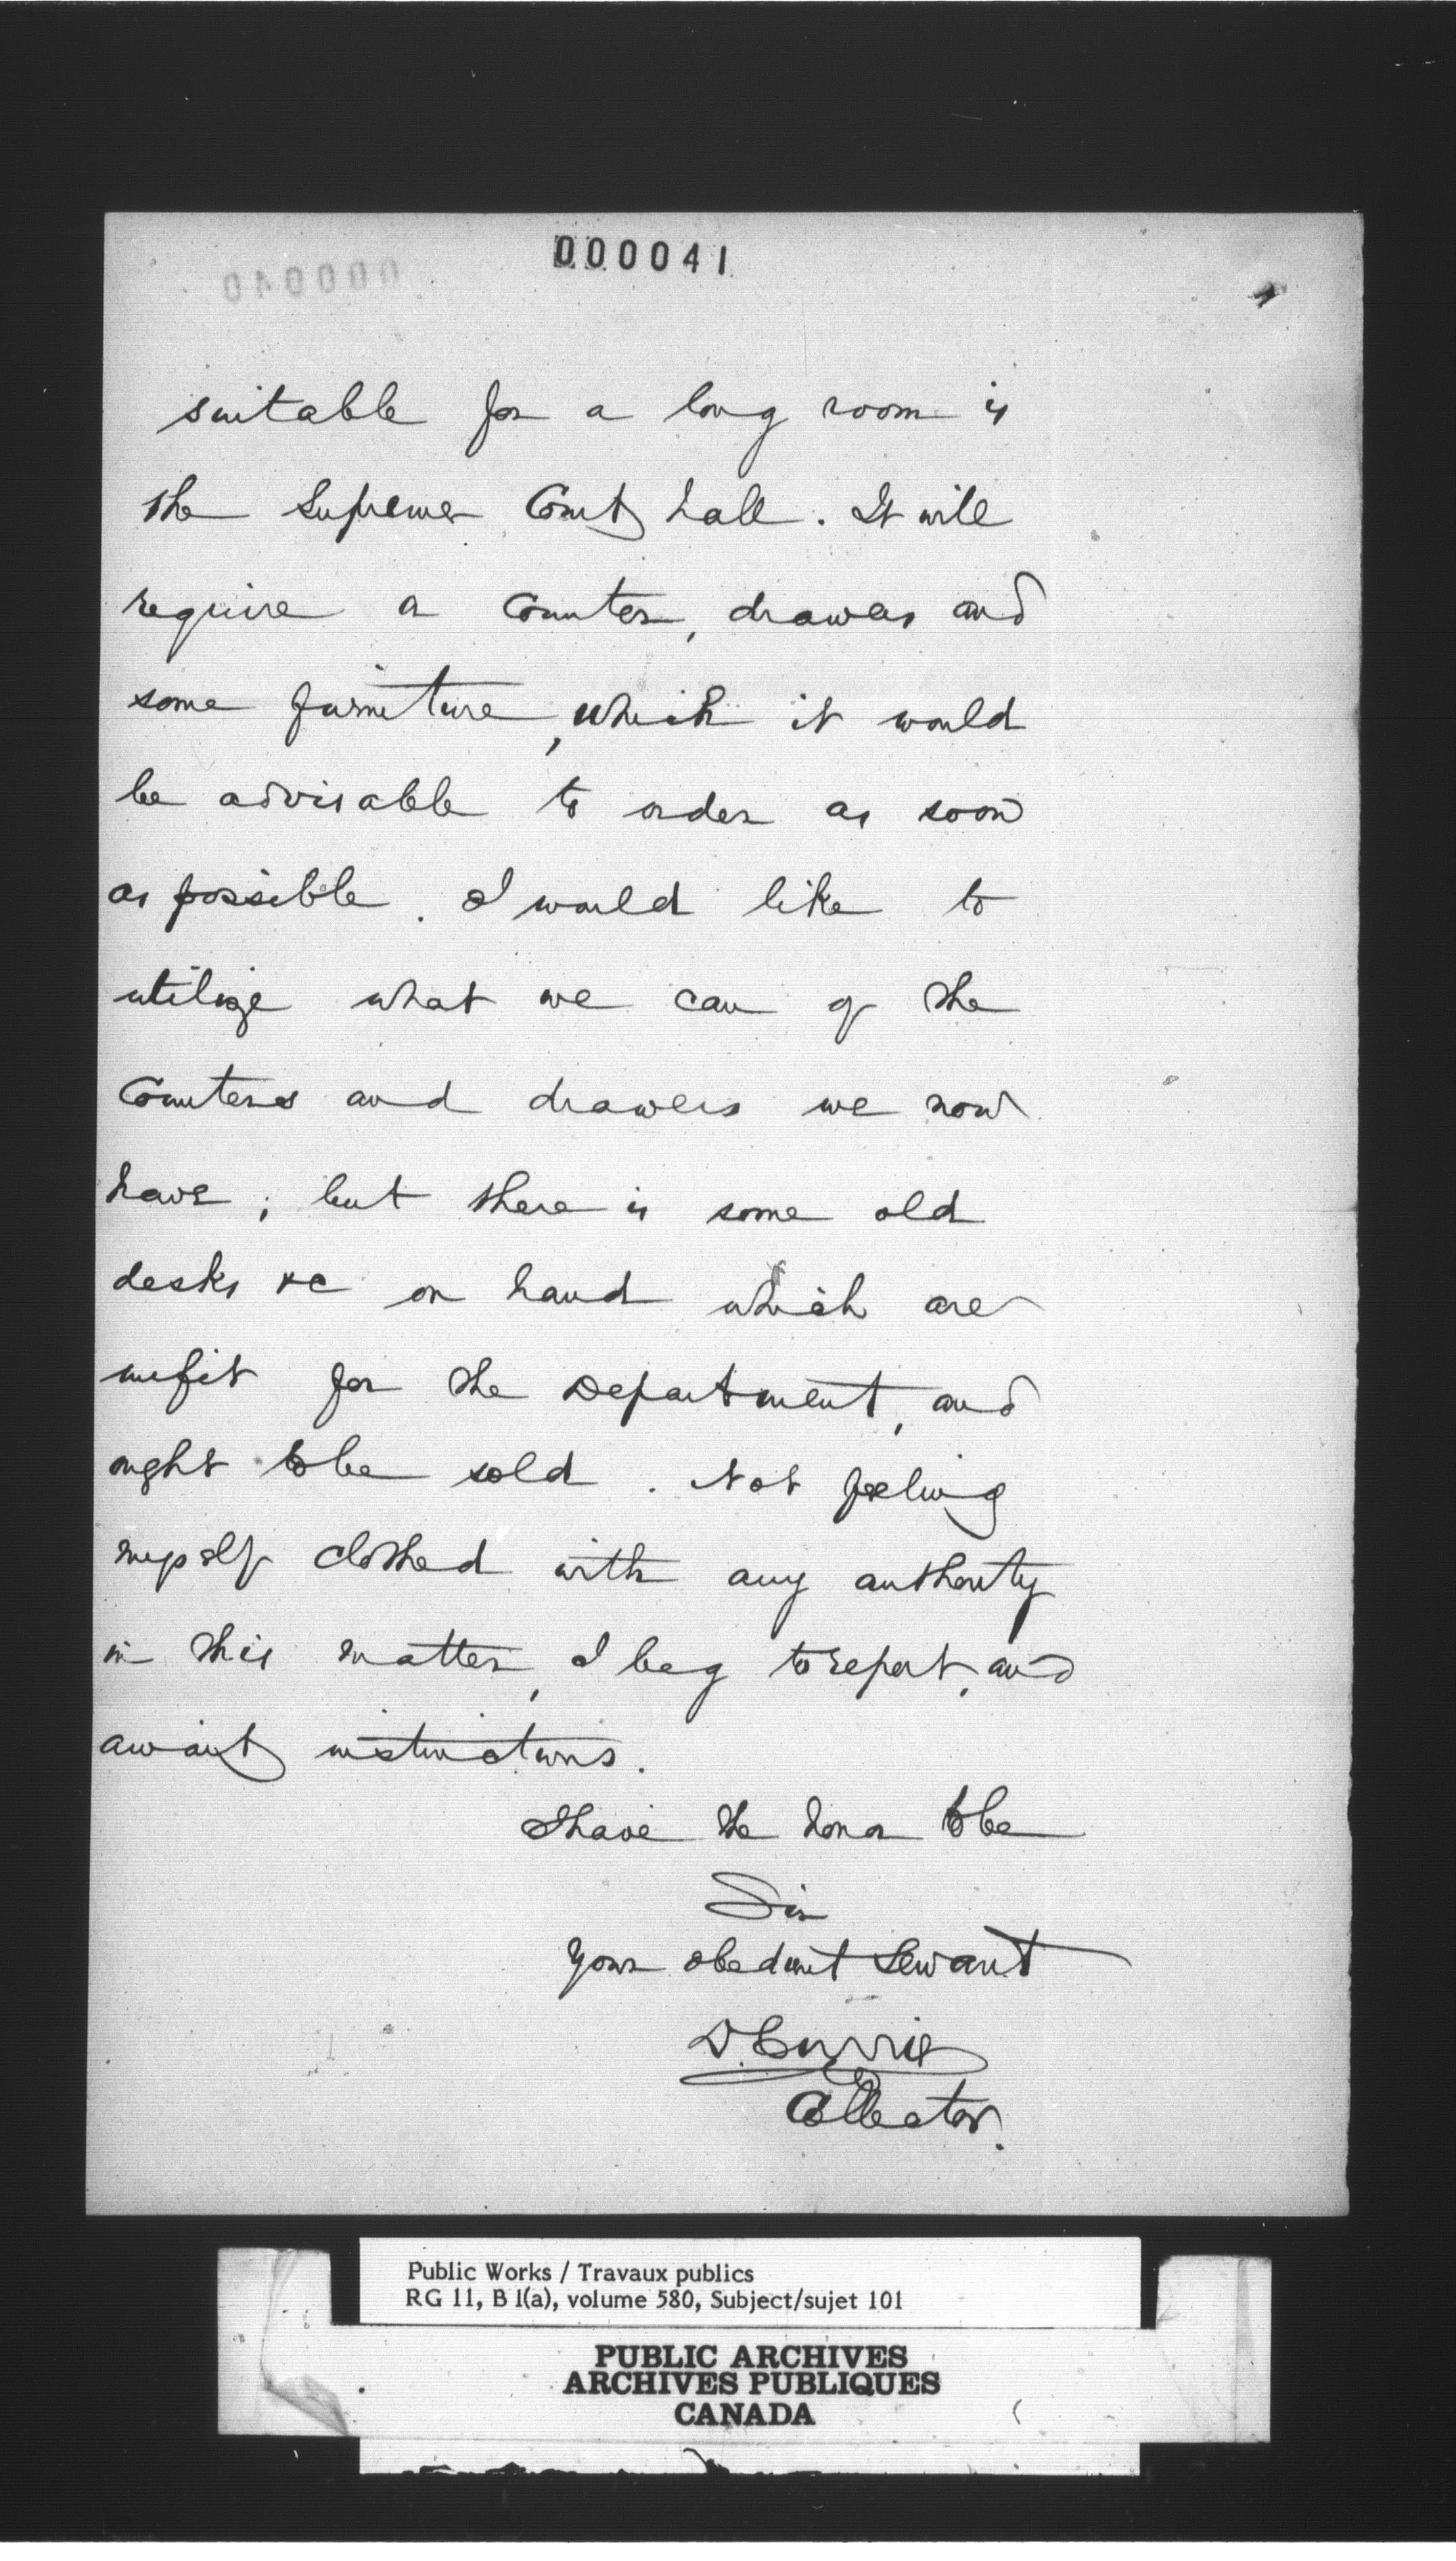 000041
000040
suitable for a long room is
the Supreme Court hall. It will
require a Counter, drawers and
some furniture, which it would
be advisable to order as soon
as possible. I would like to
utilize what we can of the
Counters and drawers we now
have; but there is some old
desks &c on hand which are
unfit for the Department, and
ought to be sold. Not feeling
myself clothed with any authority
in this matter, I beg to report, and
await instructions.
I have the honor to be
Sir
Your obedient Servant
D. Currie
Collector.
Public Works / Travaux publics
RG 11, B 1(a), volume 580, Subject/sujet 101
PUBLIC ARCHIVES
ARCHIVES PUBLIQUES
CANADA